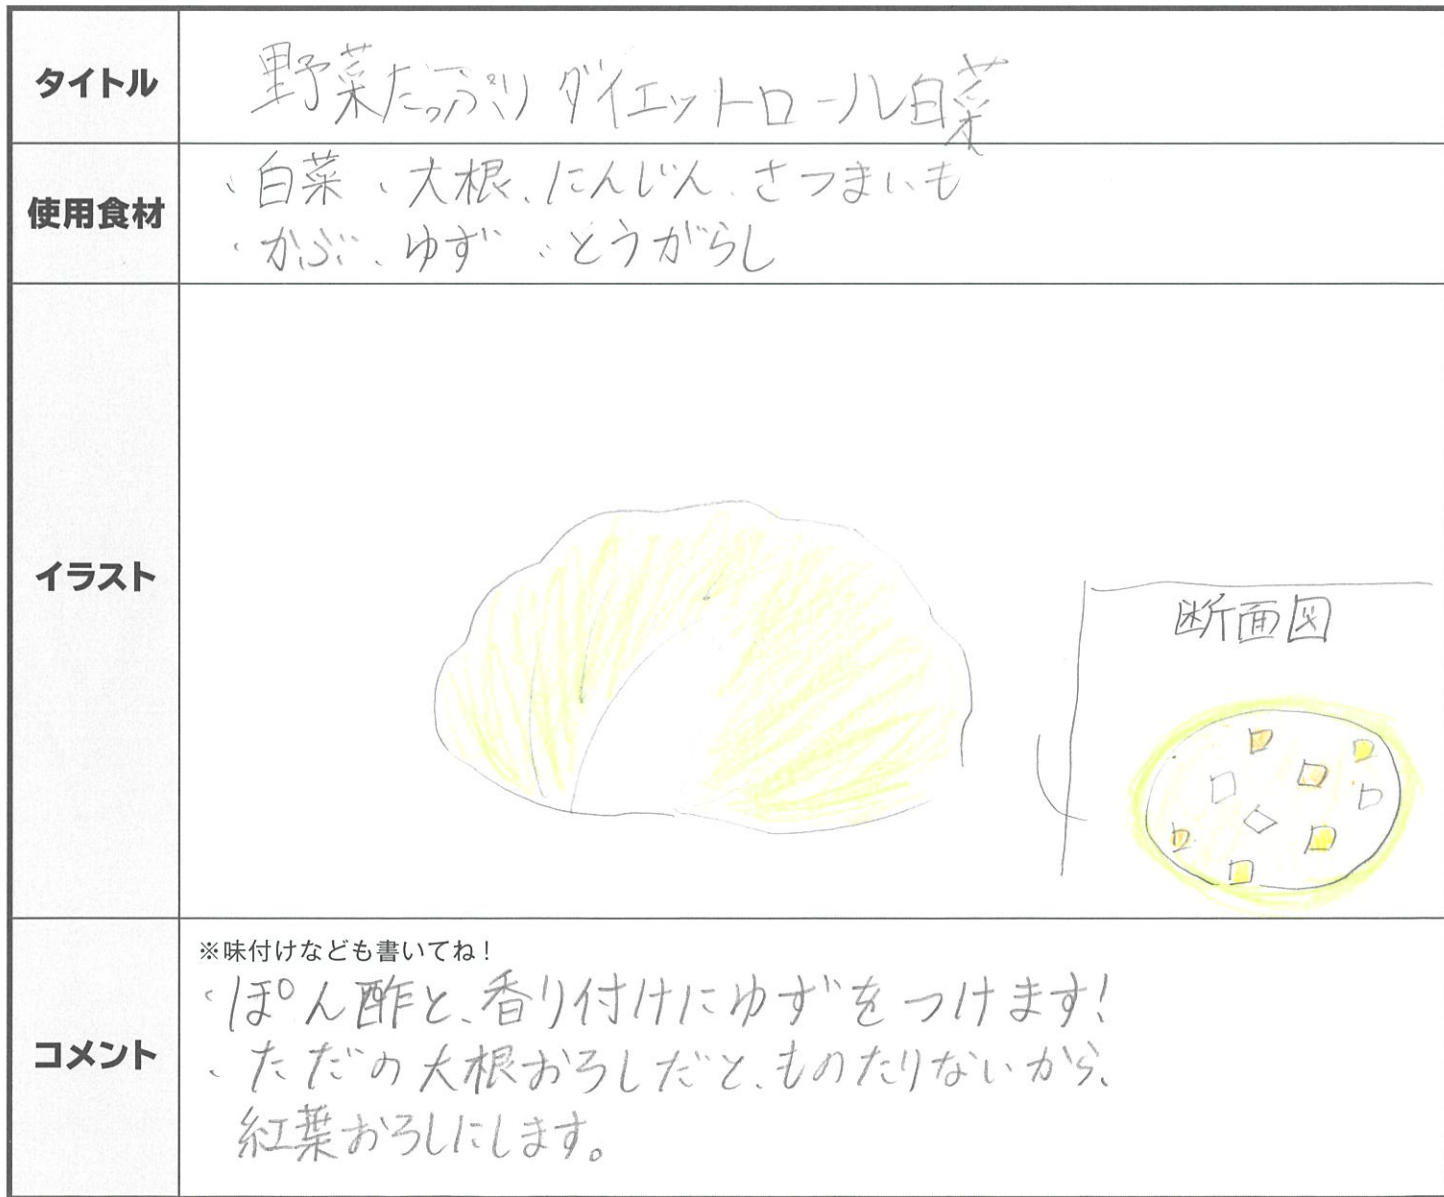 タイトル
野菜たっぷりダイエットロール白菜
使用食材
・白菜・大根、にんじん、さつまいも
・かぶ、ゆず・とうがらし
イラスト
断面図
コメント
※味付けなども書いてね!
・ぽん酢と、香り付けにゆずをつけます!
・ただの大根おろしだと、ものたりないから、
紅葉おろしにします。